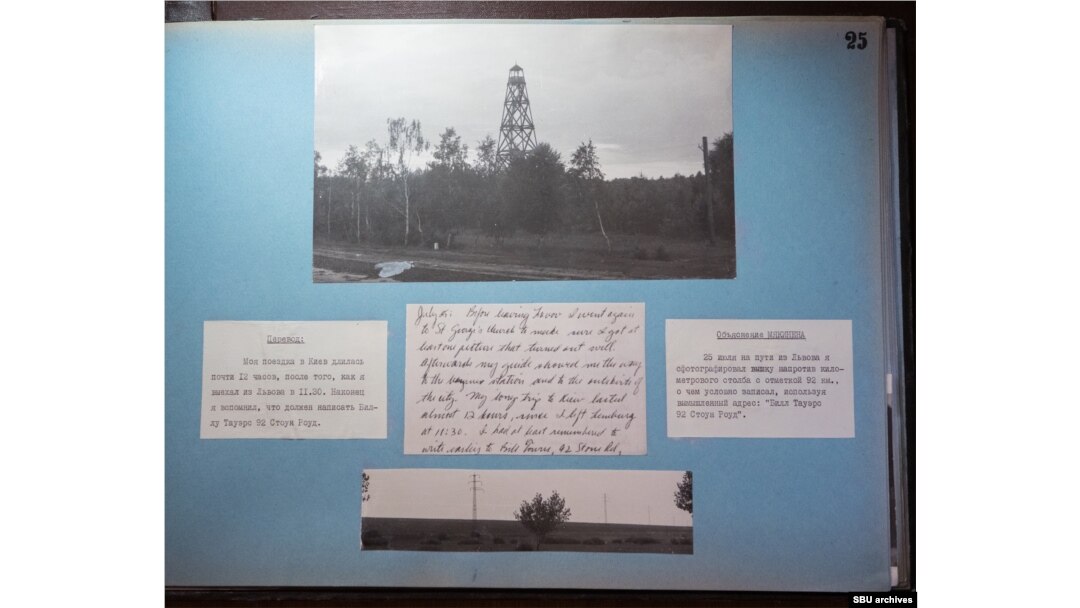 25
Перевод:
Моя поездка в Киев длилась
почти 12 часов, после того, как я
выехал из Львова в 11.30. Наконец
я вспомнил, что должен написать Бил-
лу Тауэрс 92 Стоун Роуд.
July 25: Before leaving Lvov I went again
to St George's Church to make sure I got at
least one picture that turned out well.
Afterwards my guide showed me the way
to the station and to the outskirts of
the city. My long trip to Kiew lasted
almost 12 hours, since I left Lemburg
at 11:30. I had at last remembered to
write earlier to Bill Towers, 92 Stone Rd,
Объяснение МАКИНЕНА
25 июля на пути из Львова я
сфотографировал вышку напротив кило-
метрового столба с отметкой 92 км.,
о чем условно записал, используя
вымышленный адрес: "Билл Тауэрс
92 Стоун Роуд".
SBU archives